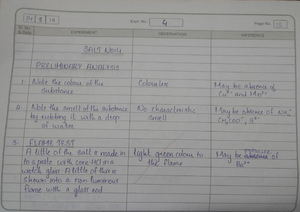 14 8 19
Expt. No. 4
Page No.
EXPERIMENT OBSERVATION INFERENCE
SALT NO:4
PRELIMINARY ANALYSIS
1. Note the colour of the Colourless May be absence of
substance Cu²⁺ and Mn²⁺
2. Note the smell of the substance No characteristic May be absence of NH₄⁺
by rubbing it with a drop smell CH₃COO⁻, S²⁻
of water
3. FLAME TEST
A little of the salt is made in light green colour to May be of
to a paste with conc HCl in a the flame Ba²⁺
watch glass A little of this is
shown into a non luminous
flame with a glass rod